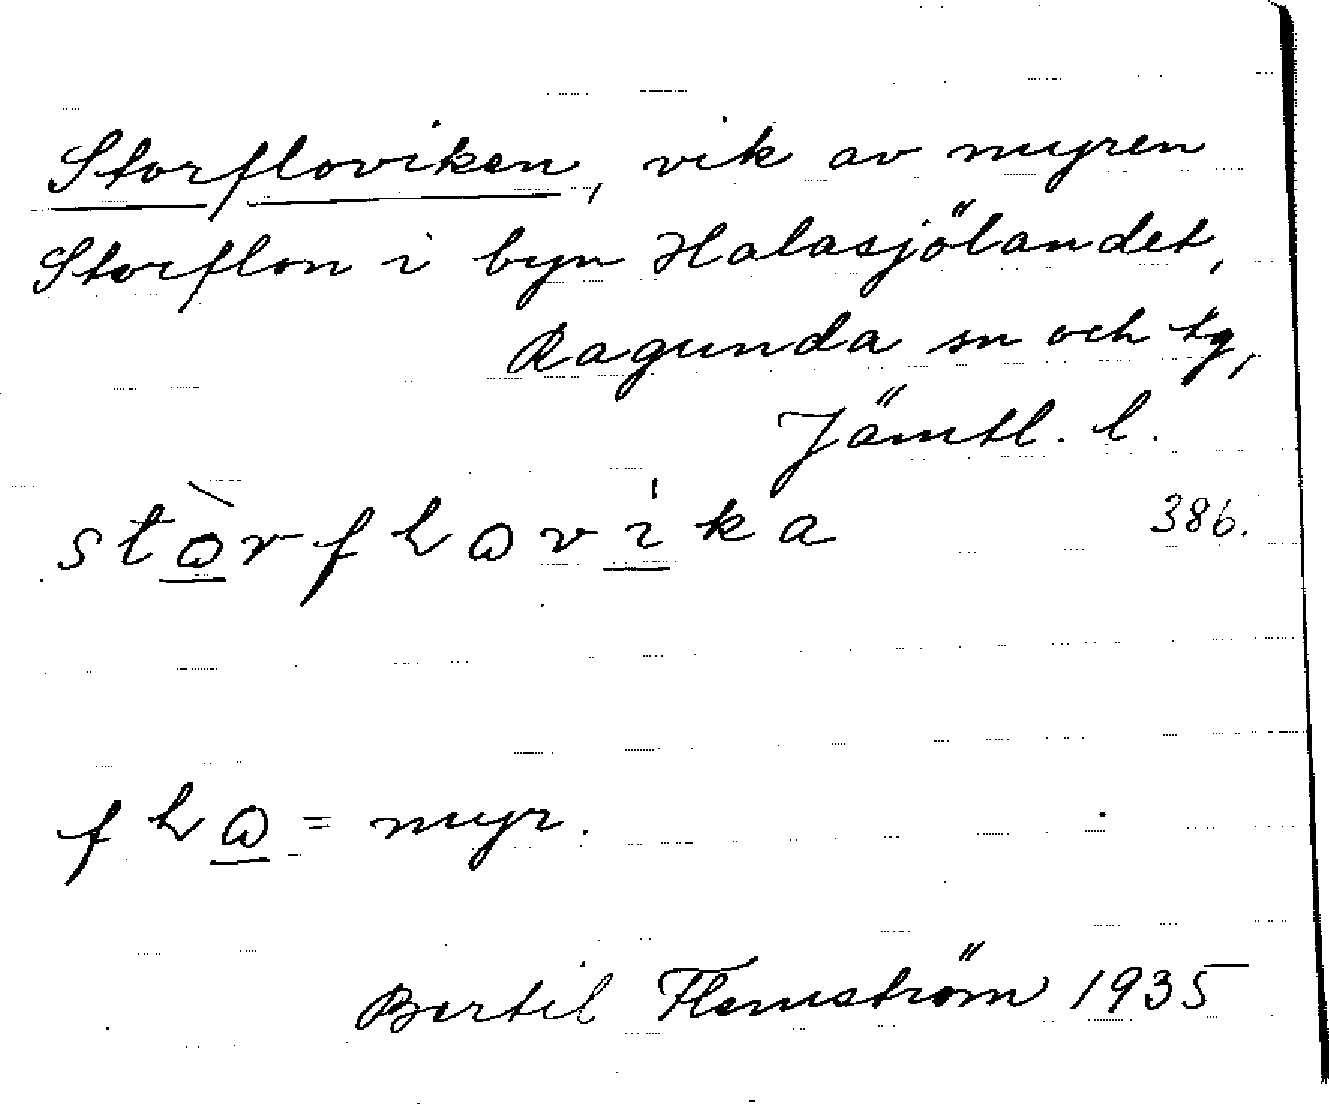 Storfloviken, vik av myren
Storflon i byn Halasjölandet,
Ragunda sn och tg,
Jämtl. l.
stɷ̀rfꞎɷvi̍ka
386.
fꞎɷ = myr.
Bertil Flemström 1935